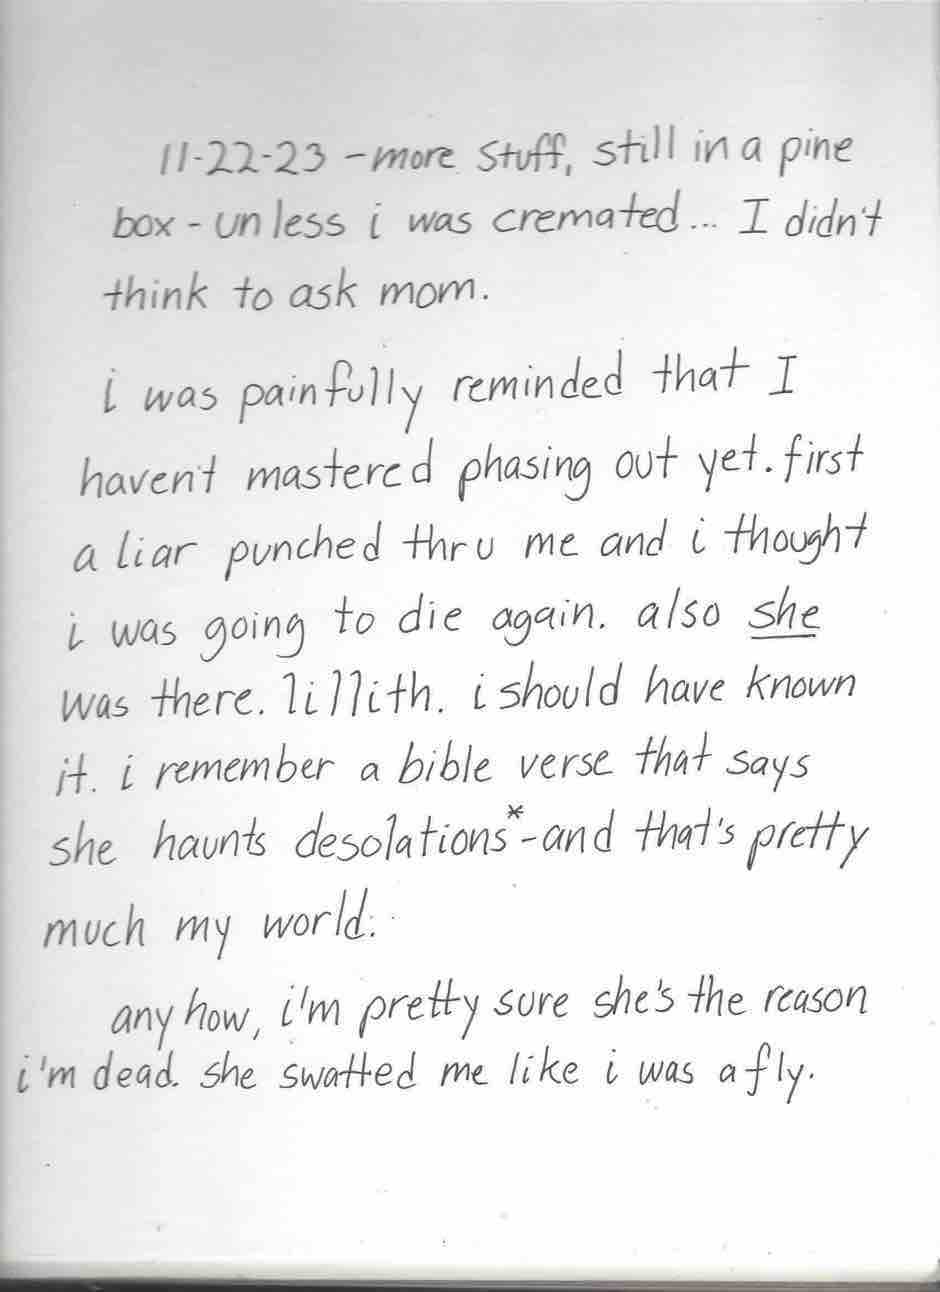 11-22-23 - more stuff, still in a pine
box - unless i was cremated... I didn't
think to ask mom.
i was painfully reminded that I
haven't mastered phasing out yet. first
a liar punched thru me and i thought
i was going to die again. also she
was there. lillith. i should have known
it. i remember a bible verse that says
she haunts desolations* - and that's pretty
much my world.
anyhow, i'm pretty sure she's the reason
i'm dead. she swatted me like i was a fly.